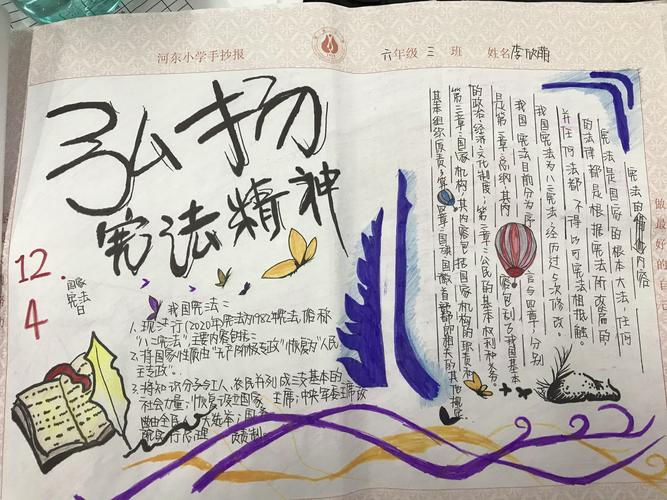 河东小学手抄报
六年级 三 班 姓名 李欣萌
弘扬
宪法精神
12.
4
国家
宪法
日
我国宪法:
1. 现行(2020年)宪法为1982年宪法,俗称
"八二宪法",主要内容包括:
2. 将国家性质由"无产阶级专政"恢复为"人民
主专政".
3. 将知识分子与工人、农民并列成三支基本的
社会力量;恢复设立国家主席;中央军委主席
宪法的内容
宪法是国家的根本大法,任何
的法律都是根据宪法所
并任何法都不得以与宪法相抵触。
我国宪法为八二宪法,经历过5次修改。
我国宪法目前分为序言与四章,分别
是第一章:总纲,其内容包括了我国基本
的政治、经济、文化制度;第二章:公民的基本权利和义务。
第三章:国家机构,其内容包括国家机构的职责和
基本组织原责;第四章:国旗国徽首都
做
最
好
的
自